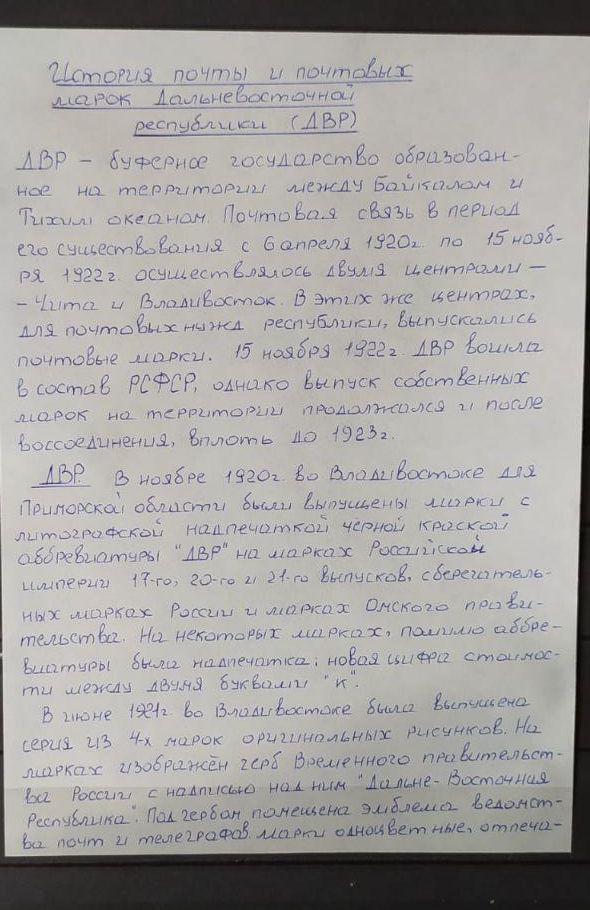 История почты и почтовых
марок Дальневосточной
республики (ДВР)
ДВР – буферное государство образован-
ное на территории между Байкалом и
Тихим океаном. Почтовая связь в период
его существования с 6 апреля 1920г. по 15 нояб-
ря 1922г. осуществлялось двумя центрами –
- Чита и Владивосток. В этих же центрах,
для почтовых нужд республики, выпускались
почтовые марки. 15 ноября 1922г. ДВР вошла
в состав РСФСР, однако выпуск собственных
марок на территории продолжался и после
воссоединения, вплоть до 1923г.
ДВР. В ноябре 1920г. во Владивостоке для
Приморской области были выпущены марки с
литографской надпечаткой черной краской
аббревиатуры "ДВР" на марках Российской
империи 17-го, 20-го и 21-го выпусков, сберегатель-
ных марках России и марках Омского прави-
тельства. На некоторых марках, помимо аббре-
виатуры была надпечатка: новая цифра стоимос-
ти между двумя буквами "к".
В июне 1921г. во Владивостоке была выпущена
серия из 4-х марок оригинальных рисунков. На
марках изображён герб Временного правительст-
ва России с надписью над ним "Дальне-Восточная
Республика". Под гербом помещена эмблема ведомст-
ва почт и телеграфов. Марки одноцветные, отпеча-